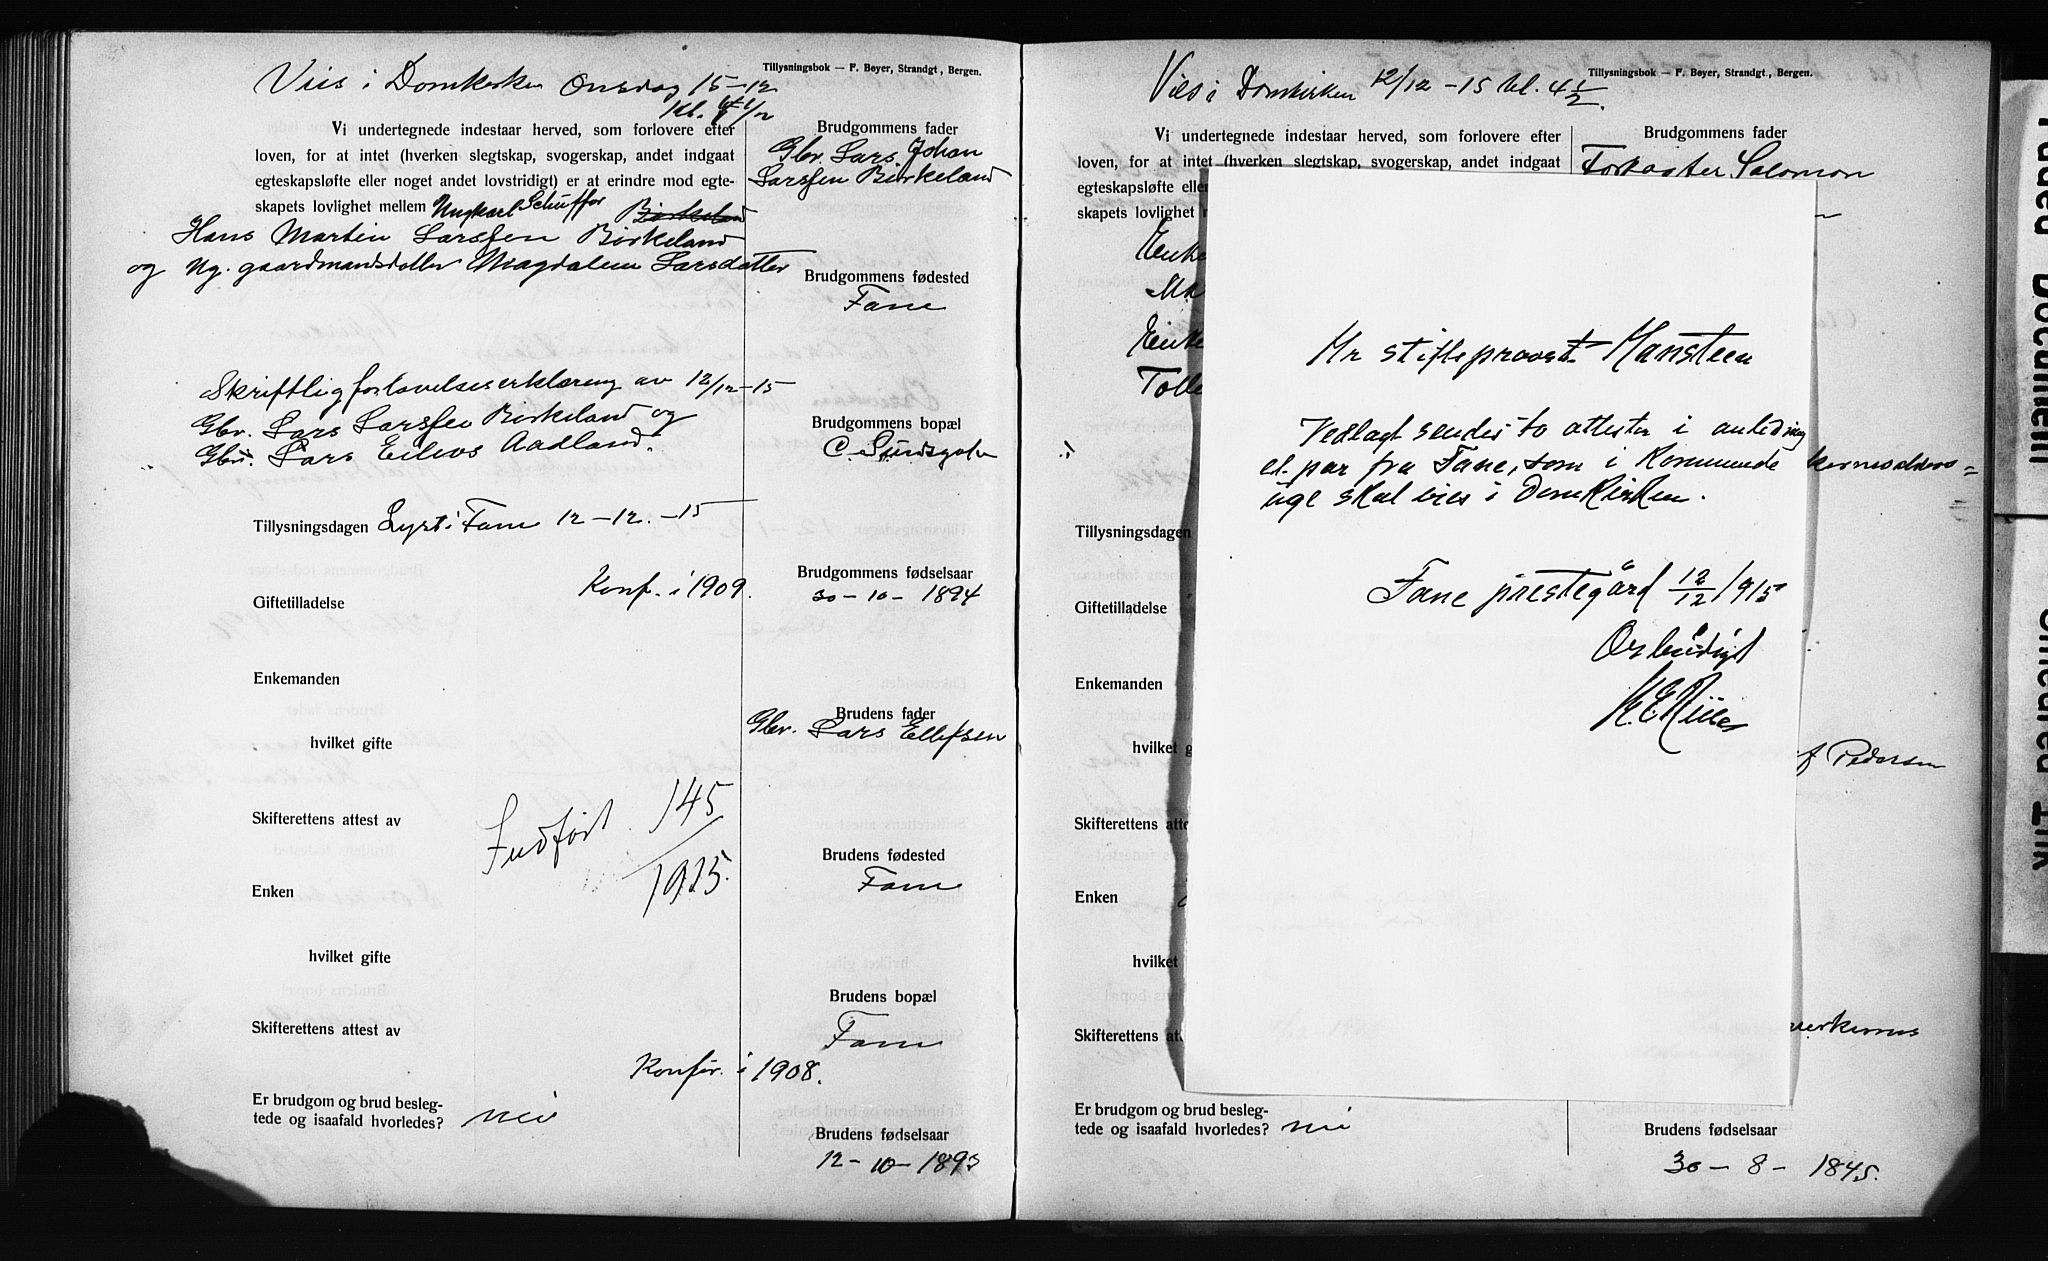 Vies i Domkirken Onsdag 15-12
Kl. 4 1/2
Tillysningsbok — F. Bøyer, Strandgt, Bergen.
Vi undertegnede indestaar herved, som forlovere efter
loven, for at intet (hverken slegtskap, svogerskap, andet indgaat
egteskapsløfte eller noget andet lovstridigt) er at erindre mod egte-
skapets lovlighet mellem Ungkarl Schuffør Birkeland
Hans Martin Larssen Birkeland
og Ug. gaardmandsdatter Magdalene Larsdatter
Skriftlig forlovelseserklæring av 12/12-15
Gbr. Lars Larssen Birkeland og
Gbr. Lars Eilevs Aadland.
Tillysningsdagen Lyst i Fane 12-12.-15
Konf. i 1909.
Giftetilladelse
Enkemanden
hvilket gifte
Skifterettens attest av
Indført 145
1915.
Enken
hvilket gifte
Skifterettens attest av
Konfir. i 1908.
Er brudgom og brud besleg-
tede og isaafald hvorledes? nei
Brudgommens fader
Gbr. Lars Johan
Larssen Birkeland
Brudgommens fødested
Fane
Brudgommens bopæl
C. Sundsgt.
Brudgommens fødselsaar
30-10-1894
Brudens fader
Gbr. Lars Ellefsen
Brudens fødested
Fane
Brudens bopæl
Fane
Brudens fødselsaar
12-10-1893
Vies i Domkirken 12/12-15 kl. 4 1/2.
Tillysningsbok — F. Bøyer, Strandgt., Bergen.
Vi undertegnede indestaar herved, som forlovere efter
loven, for at intet (hverken slegtskap, svogerskap, andet indgaat
egteskapsløfte elle
skapets lovlighet
Enke
Ma
Enke
Tolle
Tillysningsdagen
Giftetilladelse
Enkemanden
hvilket g
Skifterettens atte
Enken
hvilket
Skifterettens at
Er brudgom og brud besleg-
tede og isaafald hvorledes? nei
Brudgommens fader
Forkaster Salomon
f Pedersen
Brudens fødselsaar
30-8-1845.
Hr stiftsprovst Hansteen
Vedlagt sendes to attester i anledning
et par fra Fane, som i kommende
uge skal vies i Domkirken.
Fane prestegård 12/12 1915
Ærbødigst
Faded Document
Smeared Ink